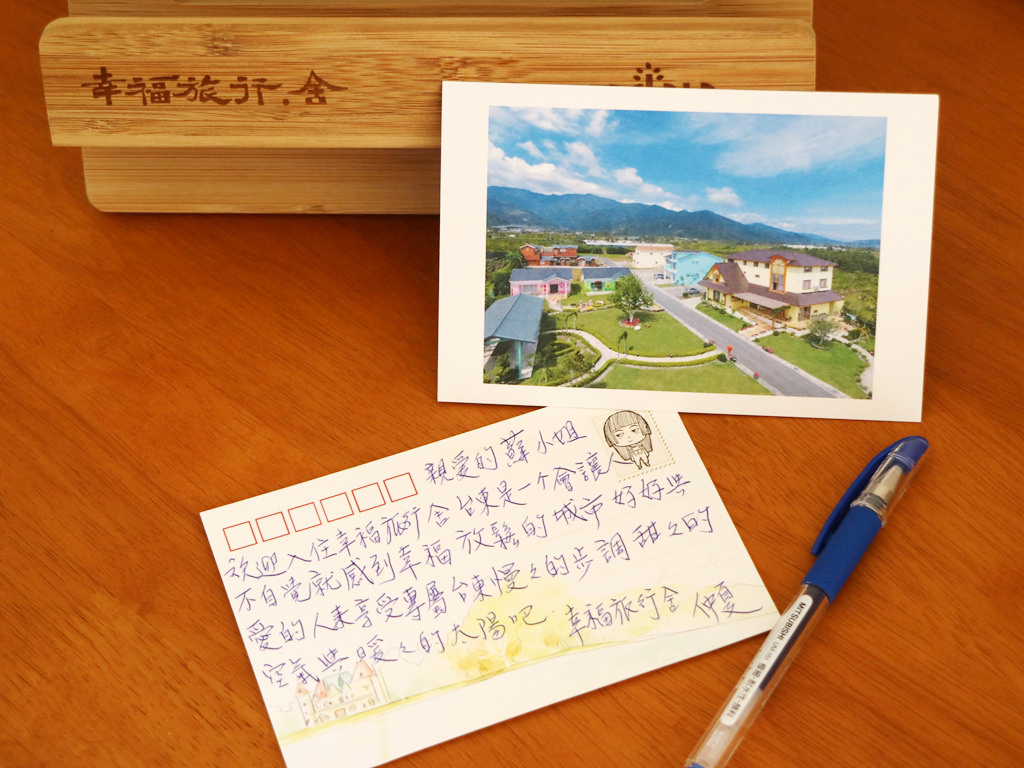 幸福旅行.舍
親愛的蘇小姐
歡迎入住幸福旅行舍台東是一个會讓人
不自覺就感到幸福放鬆的城市好好與
愛的人来享受專屬台東慢々的步調甜々的
空氣與暖々的太陽吧 幸福旅行舍 仲夏
MITSUBISHI